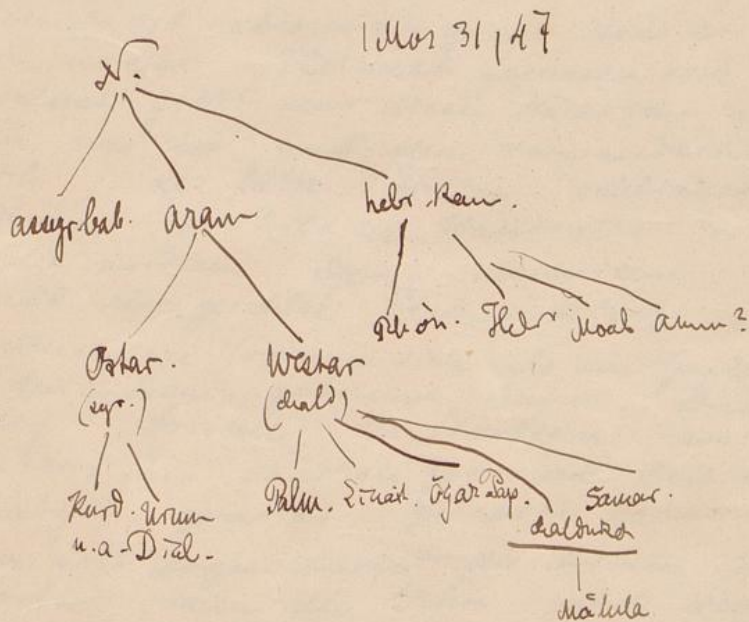 1 Mos 31,47
N.
assyr. bab. aram hebr. kan.
Phön. Hebr Moab Amm?
Ostar. Westar
(syr.) (chald)
Kurd. Urum Palm. Sinait. Ägar Pap. Samar.
u. a. Dial. chaldäisch
Mâlula